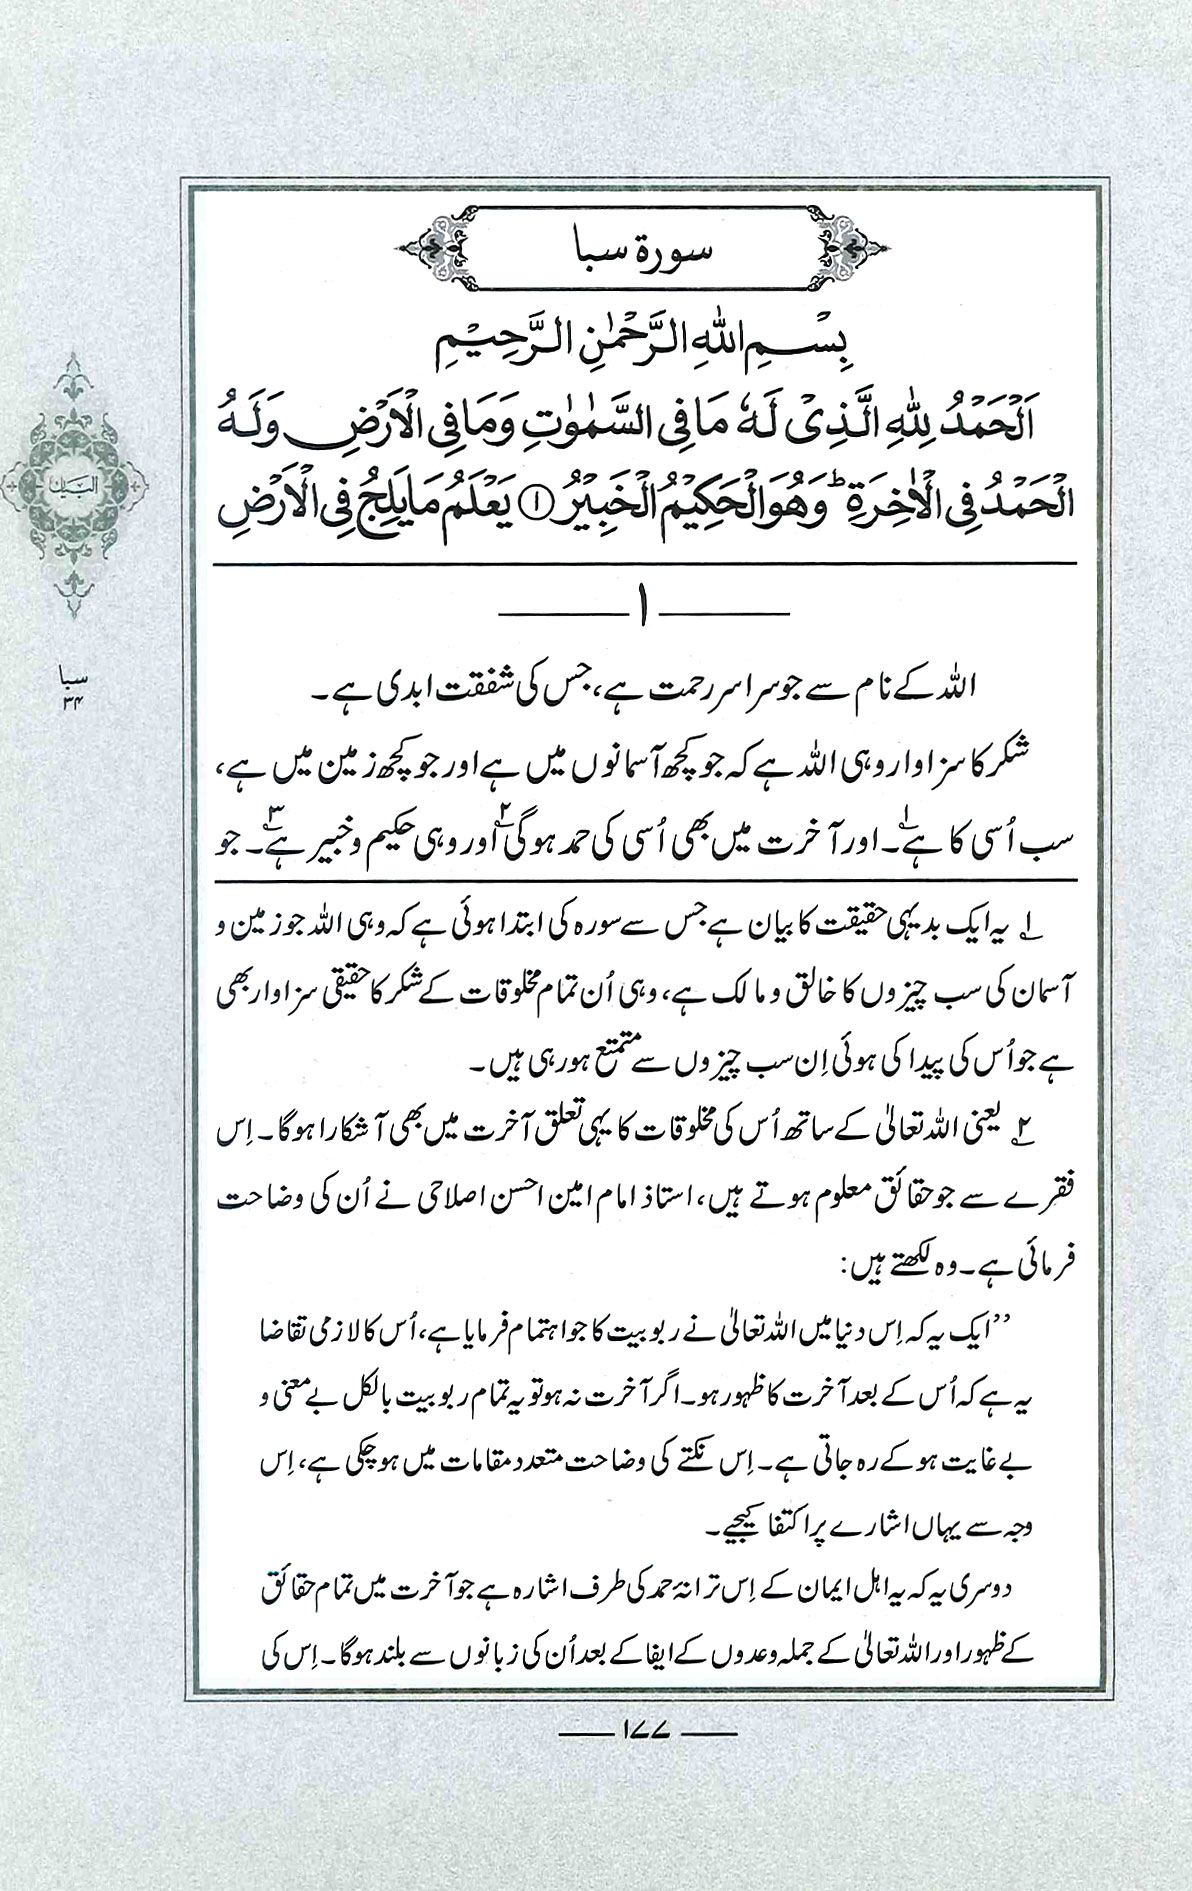 سورة سبا
بِسْمِ اللهِ الرَّحْمٰنِ الرَّحِيْمِ
اَلْحَمْدُ لِلّٰهِ الَّذِىْ لَهٗ مَا فِى السَّمٰوٰتِ وَمَا فِى الْاَرْضِ وَلَهُ
الْحَمْدُ فِى الْاٰخِرَةِؕ وَهُوَ الْحَكِيْمُ الْخَبِيْرُ ﴿۱﴾ يَعْلَمُ مَا يَلِجُ فِى الْاَرْضِ
۱
اللہ کے نام سے جو سراسر رحمت ہے، جس کی شفقت ابدی ہے۔
شکر کا سزاوار وہی اللہ ہے کہ جو کچھ آسمانوں میں ہے اور جو کچھ زمین میں ہے،
سب اُسی کا ہے۱۔ اور آخرت میں بھی اُسی کی حمد ہوگی۲ اور وہی حکیم و خبیر ہے۳۔ جو
۱ یہ ایک بدیہی حقیقت کا بیان ہے جس سے سورہ کی ابتدا ہوئی ہے کہ وہی اللہ جو زمین و
آسمان کی سب چیزوں کا خالق و مالک ہے، وہی اُن تمام مخلوقات کے شکر کا حقیقی سزاوار بھی
ہے جو اُس کی پیدا کی ہوئی اِن سب چیزوں سے متمتع ہو رہی ہیں۔
۲ یعنی اللہ تعالیٰ کے ساتھ اُس کی مخلوقات کا یہی تعلق آخرت میں بھی آشکارا ہوگا۔ اِس
فقرے سے جو حقائق معلوم ہوتے ہیں، استاذ امام امین احسن اصلاحی نے اُن کی وضاحت
فرمائی ہے۔ وہ لکھتے ہیں:
’’ایک یہ کہ اِس دنیا میں اللہ تعالیٰ نے ربوبیت کا جو اہتمام فرمایا ہے، اُس کا لازمی تقاضا
یہ ہے کہ اُس کے بعد آخرت کا ظہور ہو۔ اگر آخرت نہ ہو تو یہ تمام ربوبیت بالکل بے معنی و
بے غایت ہو کے رہ جاتی ہے۔ اِس نکتے کی وضاحت متعدد مقامات میں ہو چکی ہے، اِس
وجہ سے یہاں اشارے پر اکتفا کیجیے۔
دوسری یہ کہ یہ اہل ایمان کے اِس ترانۂ حمد کی طرف اشارہ ہے جو آخرت میں تمام حقائق
کے ظہور اور اللہ تعالیٰ کے جملہ وعدوں کے ایفا کے بعد اُن کی زبانوں سے بلند ہوگا۔ اِس کی
۱۷۷
البیان
سبا
۳۴